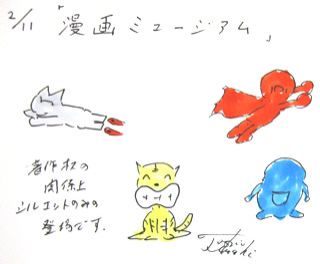 2/11「漫画ミュージアム」
著作权の
関係上
シルエットのみの
登場です.